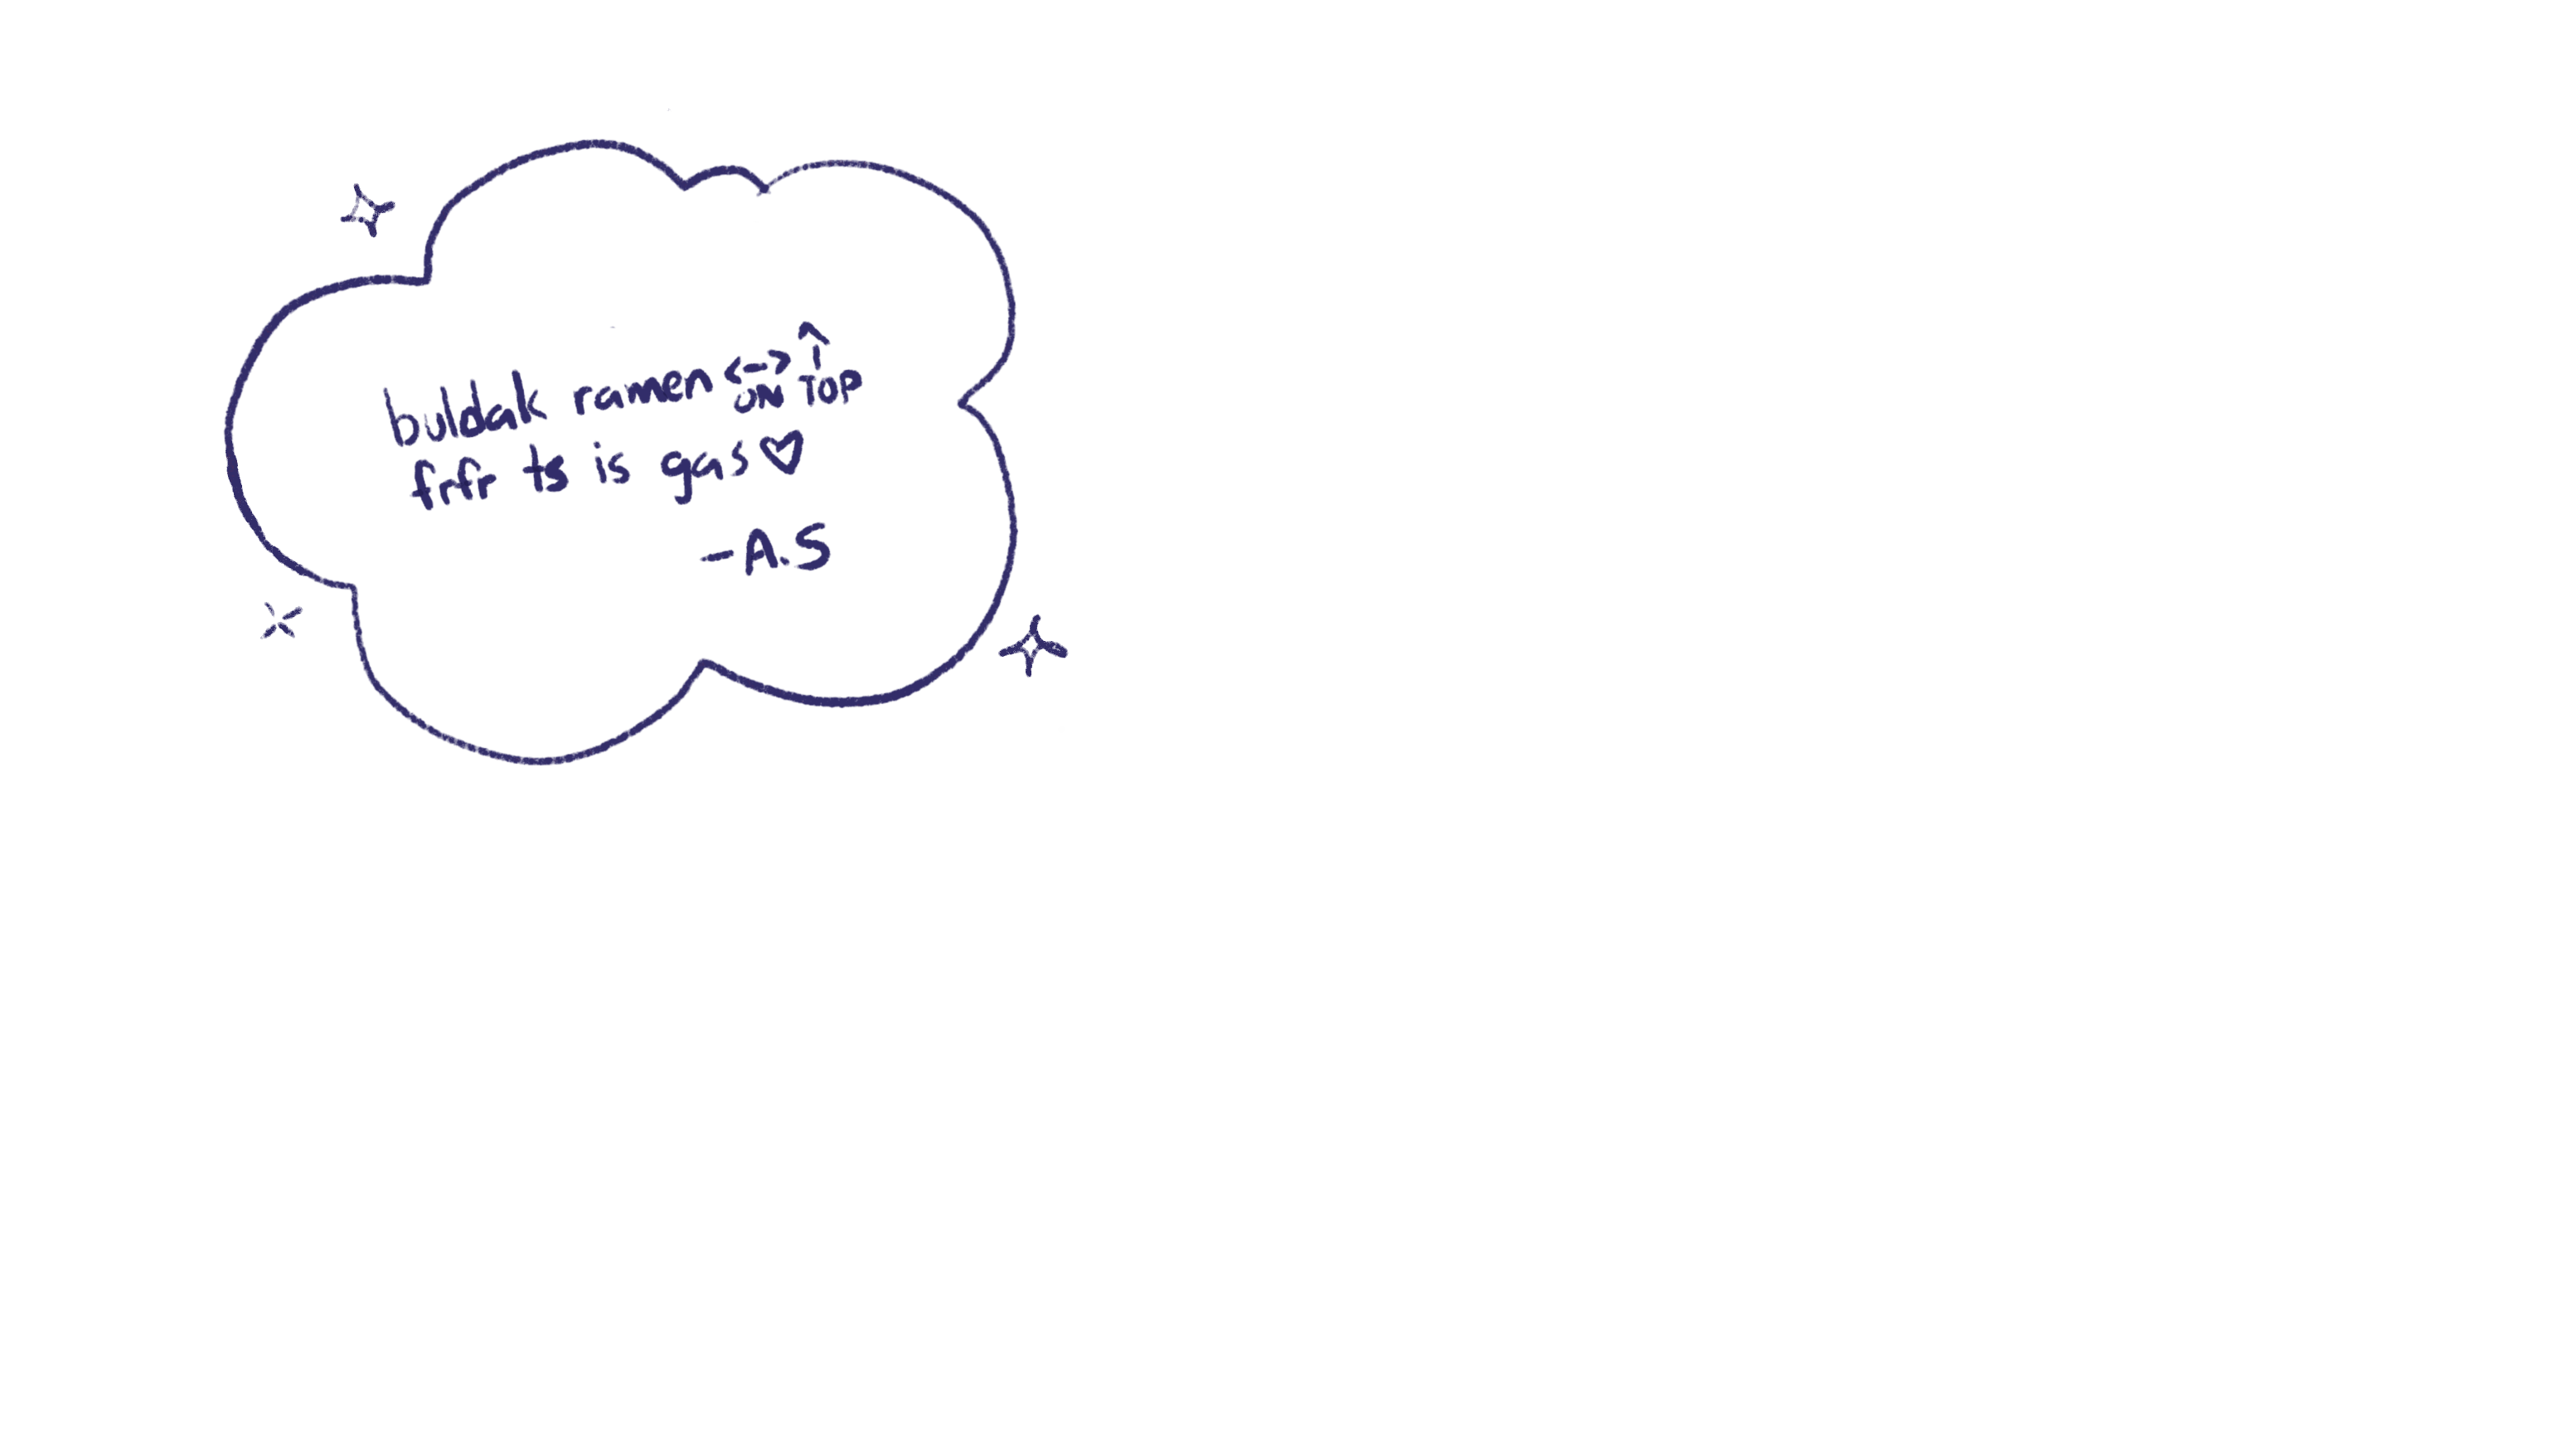 buldak ramen <-> ↑ ON TOP
frfr ts is gas ♡
-A.S